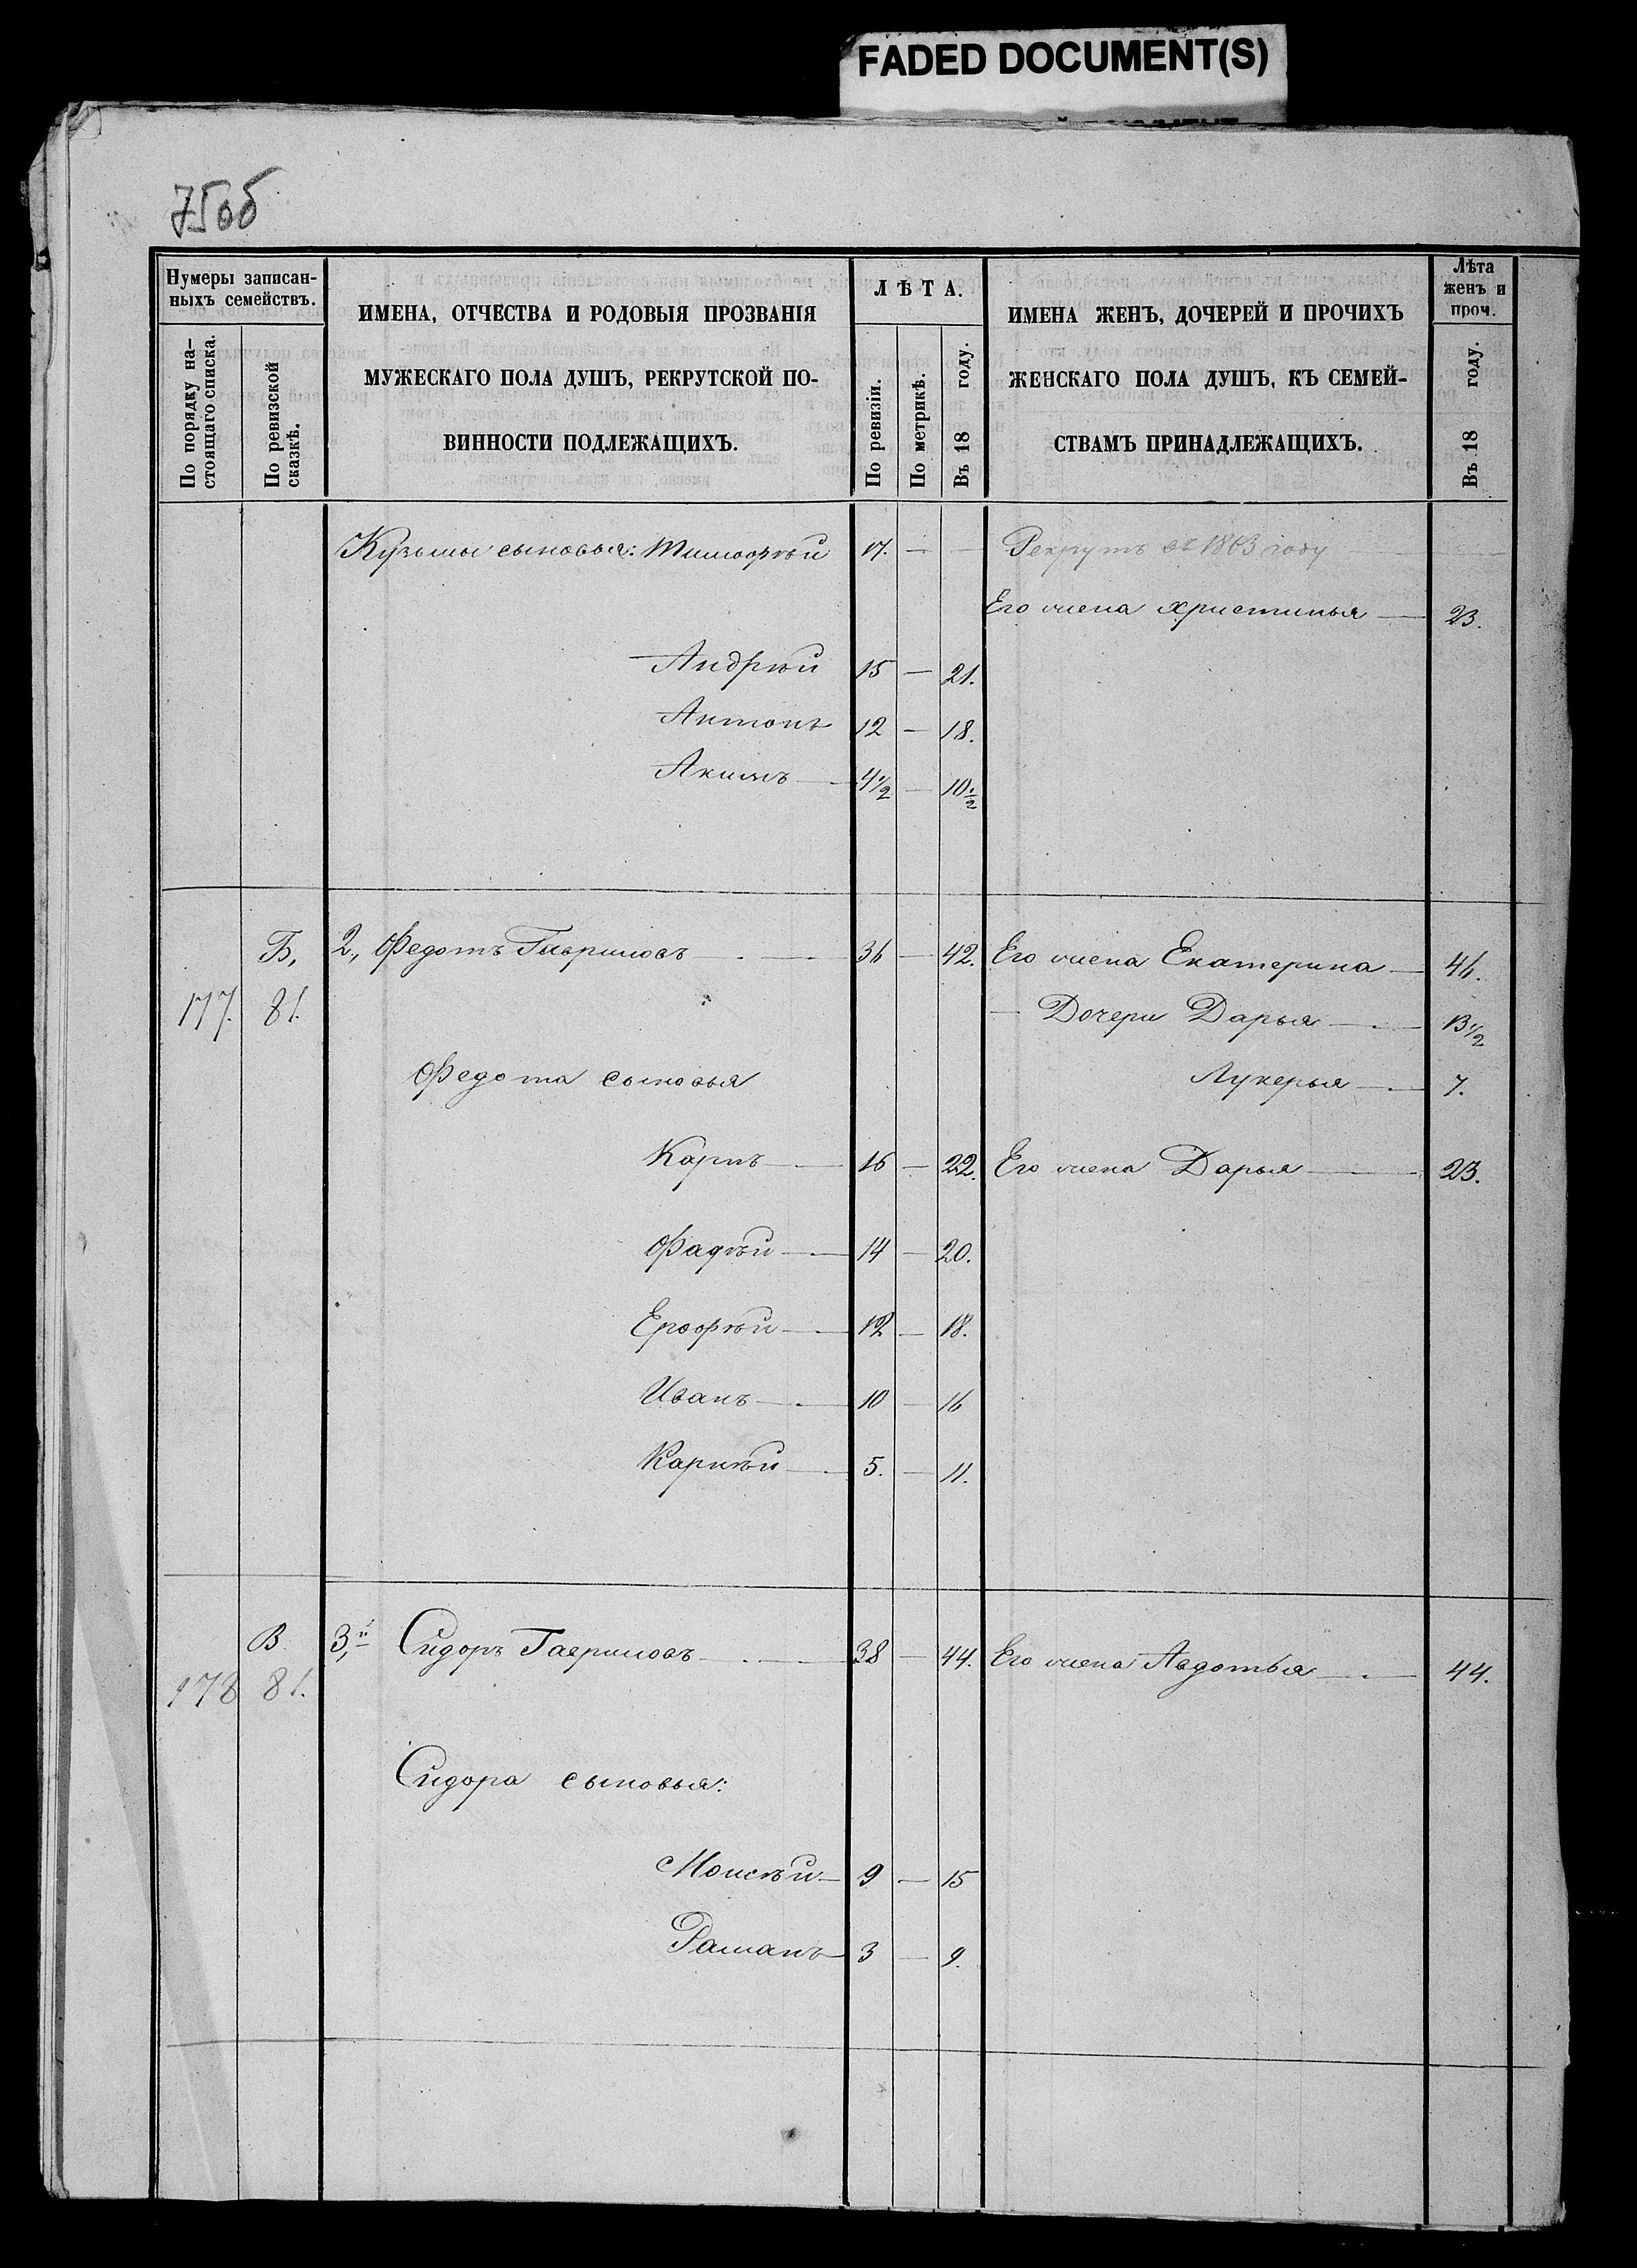 FADED DOCUMENT(S)
75об
Нумеры записан-
ныхъ семействъ.
По порядку на-
стоящаго списка.
По ревизской
сказкѣ.
ИМЕНА, ОТЧЕСТВА И РОДОВЫЯ ПРОЗВАНІЯ
МУЖЕСКАГО ПОЛА ДУШЪ, РЕКРУТСКОЙ ПО-
ВИННОСТИ ПОДЛЕЖАЩИХЪ.
ЛѢТА.
По ревизіи.
По метрикѣ.
Въ 18 году.
ИМЕНА ЖЕНЪ, ДОЧЕРЕЙ И ПРОЧИХЪ
ЖЕНСКАГО ПОЛА ДУШЪ, КЪ СЕМЕЙ-
СТВАМЪ ПРИНАДЛЕЖАЩИХЪ.
Лѣта
женъ и
проч.
Въ 18 году.
Кузьмы сыновья: Тимофѣй 17. — — Рекрутъ въ 1863 году —
Его жена Христинья — 23.
Андрѣй 15 — 21.
Антонъ 12 — 18.
Акимъ — 4 1/2 — 10 1/2
Б, 2, Федотъ Гавриловъ — 36 — 42. Его жена Екатерина — 46.
177. 81. — Дочери Дарья — 13 1/2
Федота сыновья Лукерья — 7.
Карпъ — 16 — 22. Его жена Дарья — 23.
Фадѣй — 14 — 20.
Ерофѣй — 12 — 18.
Иванъ — 10 — 16
Карнѣй — 5. — 11.
В. 3,й Сидоръ Гавриловъ — 38 — 44. Его жена Авдотья — 44.
178 81.
Сидора сыновья:
Моисѣй — 9 — 15
Раманъ — 3 — 9.